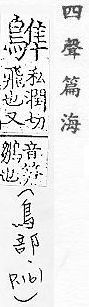 四聲篇海
私潤切
飛也又
音笋
也
(鳥部.P.161)